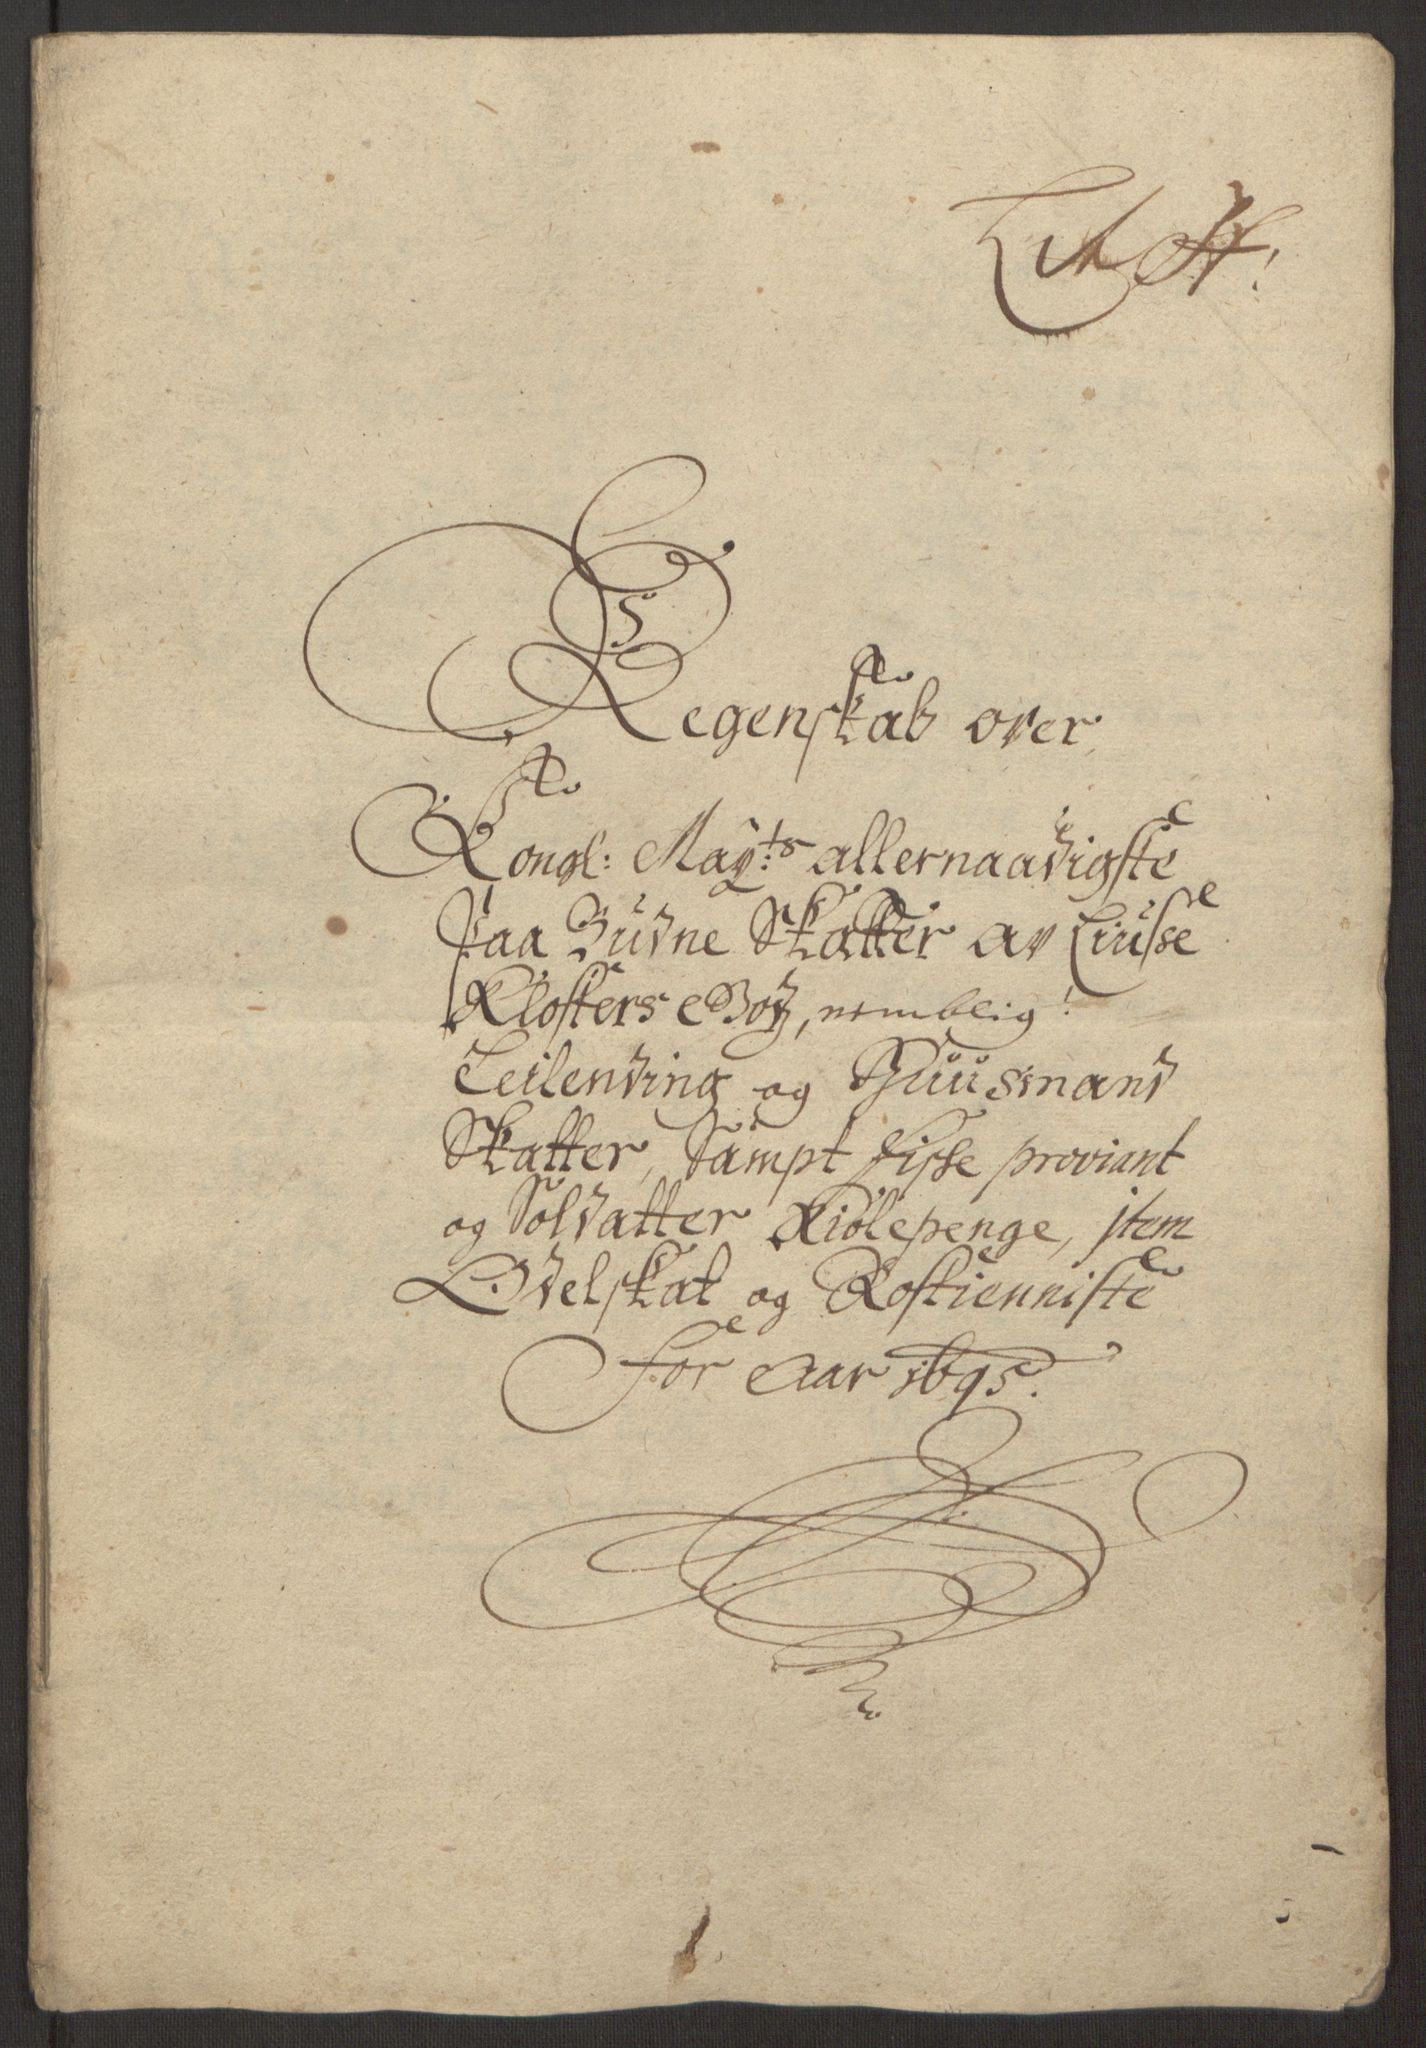 Lit H!
Regenskab over
Kongl: May:ts allernaadigste
paa Budne Skatter av Liusse
Klosters Godz, nemblig!
Leilending og Huusmand
Skatter, Sampt fisse proviant
og Soldatter Kiolepenge, item
Odelskat og Rostienniste
for Aar 1695.
1.